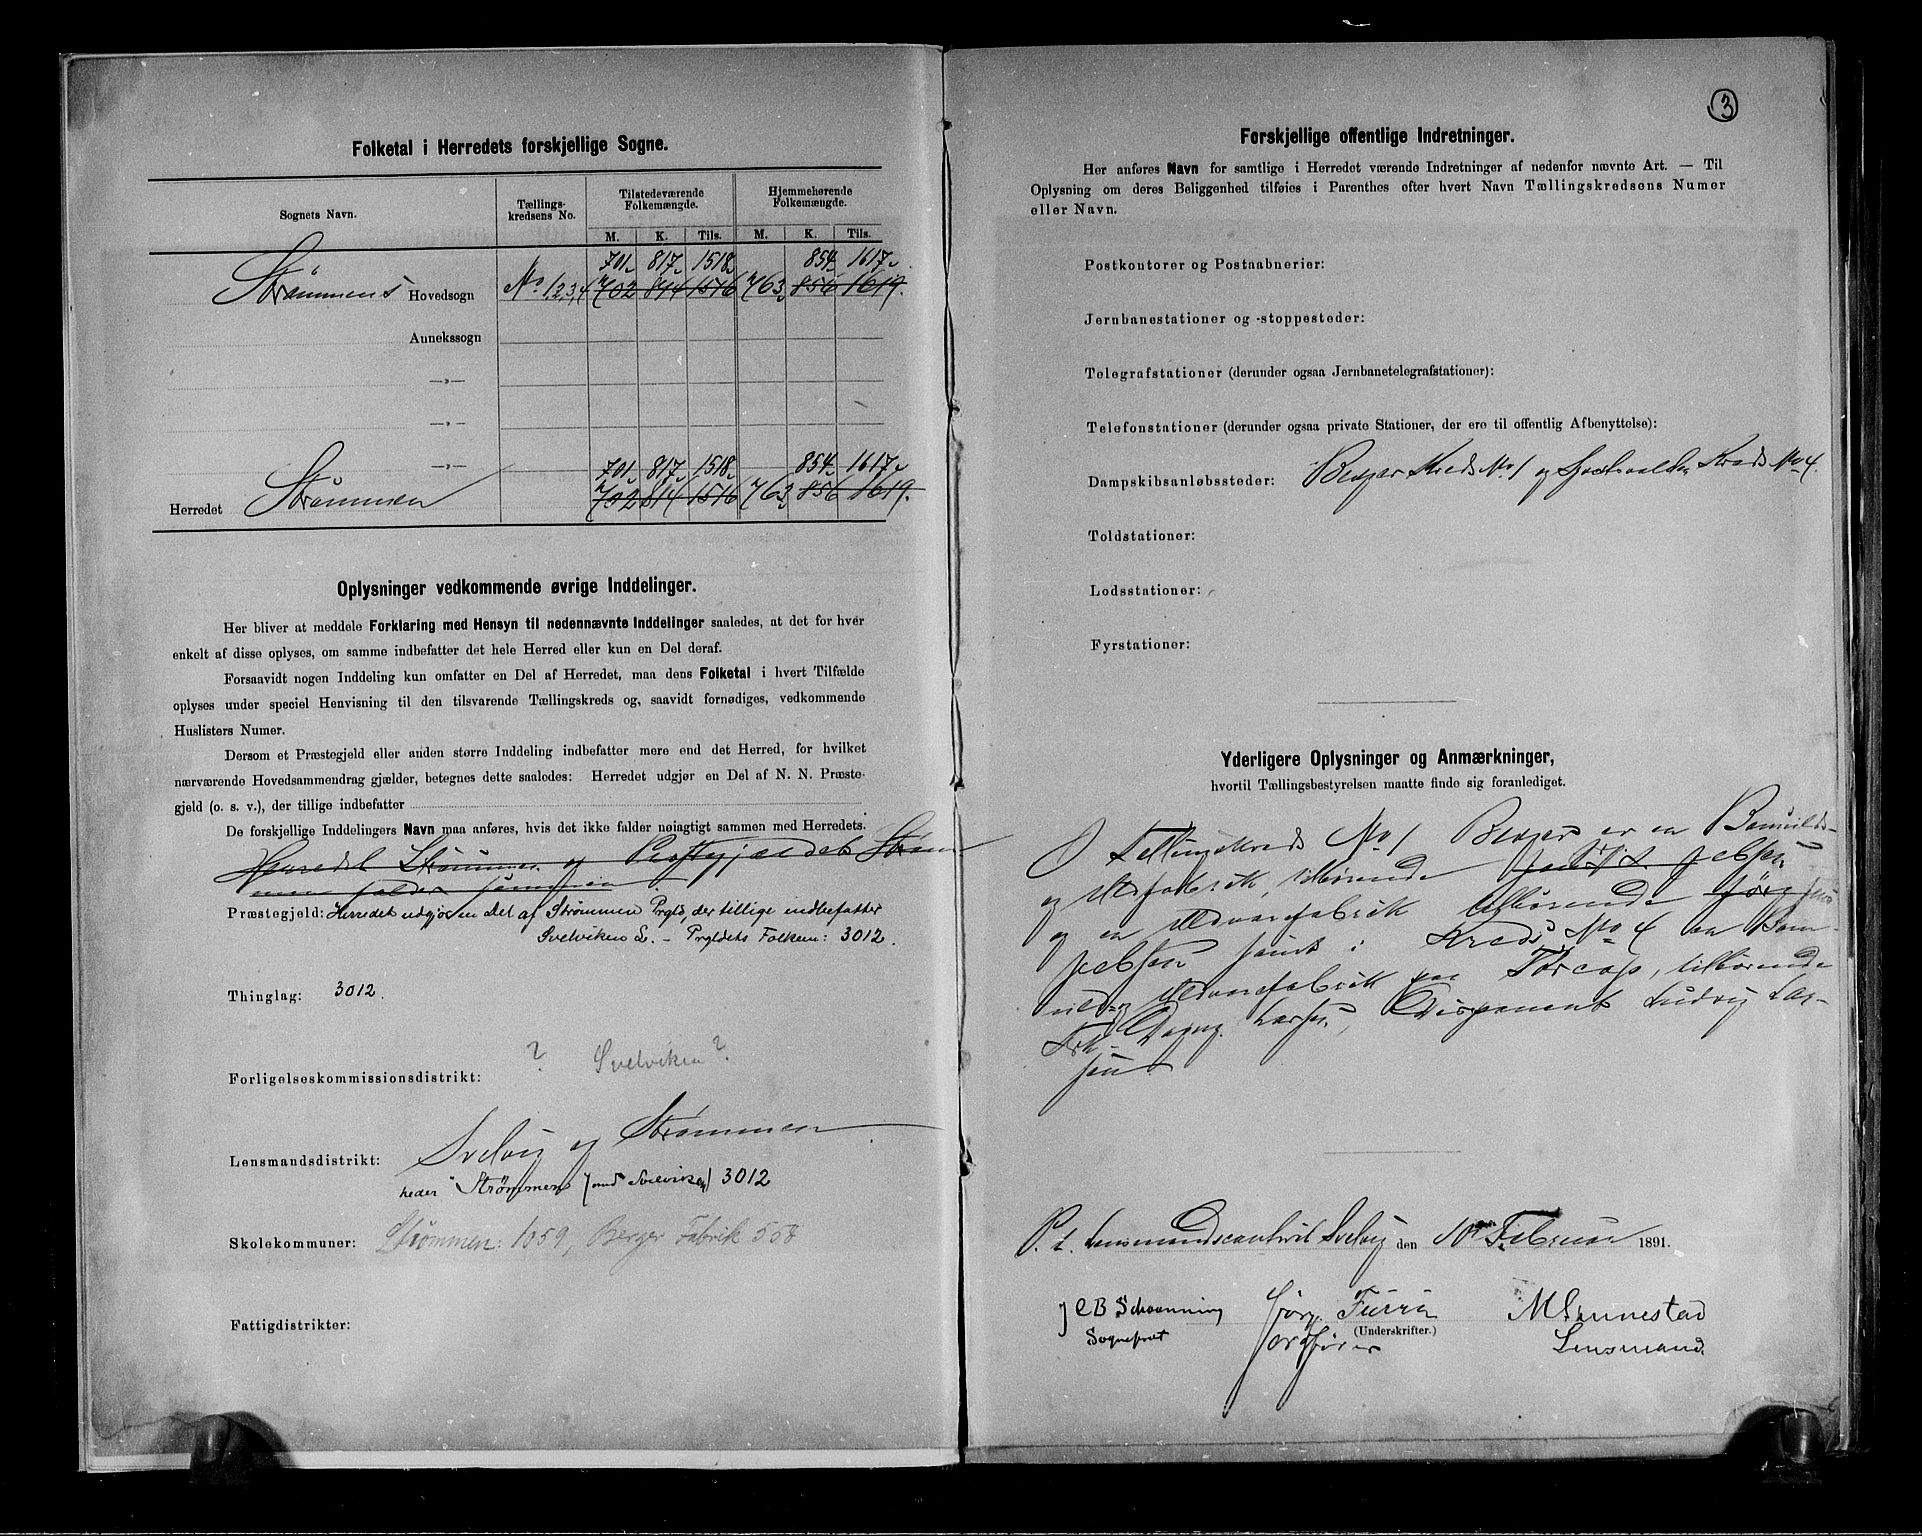 Folketal i Herredets forskjellige Sogne.
Sognets Navn. Tællings- kredsens No. Tilstedeværende Folkemængde. Hjemmehørende Folkemængde.
M. K. Tils. M. K. Tils.
701 817 1518 854 1617
Strømmens Hovedsogn No 1,2,3,4 702 814 1516 763 856 1619.
Annekssogn
—»—
—»—
—»— 701 817 1518 854 1617
Herredet Strømmen 702 814 1516 763 856 1619.
Oplysninger vedkommende øvrige Inddelinger.
Her bliver at meddele Forklaring med Hensyn til nedennævnte Inddelinger saaledes, at det for hver
enkelt af disse oplyses, om samme indbefatter det hele Herred eller kun en Del deraf.
Forsaavidt nogen Inddeling kun omfatter en Del af Herredet, maa dens Folketal i hvert Tilfælde
oplyses under speciel Henvisning til den tilsvarende Tællingskreds og, saavidt fornødiges, vedkommende
Huslisters Numer.
Dersom et Præstegjeld eller anden større Inddeling indbefatter mere end det Herred, for hvilket
nærværende Hovedsammendrag gjælder, betegnes dette saaledes: Herredet udgjør en Del af N. N. Præste-
gjeld (o. s. v.), der tillige indbefatter
De forskjellige Inddelingers Navn maa anføres, hvis det ikke falder nøiagtigt sammen med Herredets.
Herredet Strømmen og Præstegjældet Strøm
men falder sammen
Præstegjeld: Herredet udgjør en Del af Strømmen Prgld, der tillige indbefatter
Svelviken L. — Prgldets Folkem: 3012.
Thinglag: 3012.
? Svelviken?
Forligelseskommissionsdistrikt:
Svelvig og Strømmen
Lensmandsdistrikt:
heder "Strømmens (med Svelviken) 3012
Skolekommuner: Strømmen: 1059, Berger Fabrik 558
Fattigdistrikter:
3
Forskjellige offentlige Indretninger.
Her anføres Navn for samtlige i Herredet værende Indretninger af nedenfor nævnte Art. — Til
Oplysning om deres Beliggenhed tilføies i Parenthes efter hvert Navn Tællingskredsens Numer
eller Navn.
Postkontorer og Postaabnerier:
Jernbanestationer og -stoppesteder:
Telegrafstationer (derunder ogsaa Jernbanetelegrafstationer):
Telefonstationer (derunder ogsaa private Stationer, der ere til offentlig Afbenyttelse):
Dampskibsanløbssteder: Berger Kreds No 1 og Kreds No 4.
Toldstationer:
Lodsstationer:
Fyrstationer:
Yderligere Oplysninger og Anmærkninger,
hvortil Tællingsbestyrelsen maatte finde sig foranlediget.
I Tellingskreds No 1 Berger er en Bomulds-
og Uldfabrik, tilhørende Jebsen
og en Uldvarefabrik tilhørende Jørg Jens
Jebsen samt i Kreds No 4 en Bom-
uld og Uldvarefabrik paa Fossegs, tilhørende
Larsen, Disponent Ludvig Lar-
sen
P. t. Lensmandscontoret Svelvig den 10de Februar 1891.
J C B Schaanning Jørg. M Sinnestad
Sogneprest (Underskrifter.) Lensmand.
Ordfører